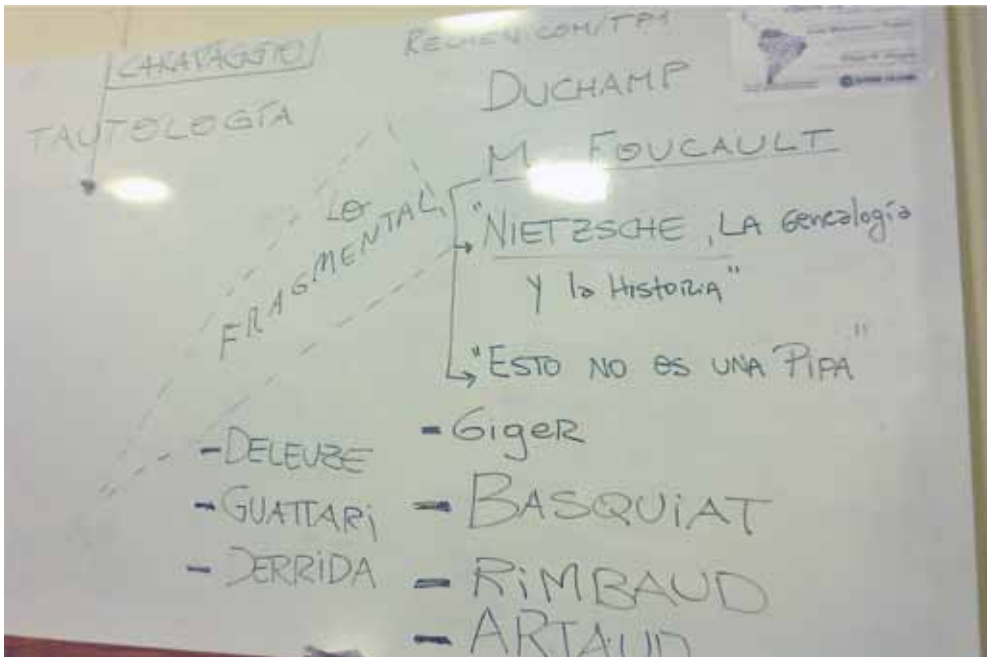 CARAVAGGIO
TAUTOLOGÍA
DUCHAMP
M FOUCAULT
LO
FRAGMENTAL
"NIETZSCHE, LA Genealogía
y la Historia"
"ESTO NO ES UNA PIPA"
- DELEUZE
- GUATTARi
- DERRiDA
- GigeR
- BASQUiAT
- RiMBAUD
- ARTAUD